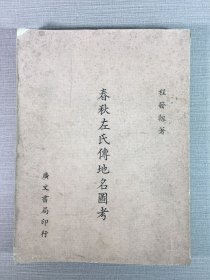 程發軔著
春秋左氏傳地名圖考
廣文書局印行